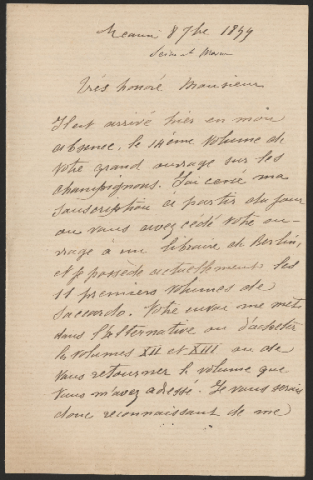 Meaux 8 7bre 1899
Seine et Marne
Très honoré Monsieur
Il est arrivé hier en mon
absence, le 14ème volume de
votre grand ouvrage sur les
champignons. J'ai cessé ma
souscription à partir du jour
où vous avez cédé votre ou-
vrage à un libraire de Berlin,
et je possède actuellement les
11 premiers volumes de
Saccardo. Votre envoi me mets
dans l'alternative ou d'acheter
les volumes XII et XIII ou de
vous retourner le volume que
vous m'avez adressé. Je vous serais
donc reconnaissant de me